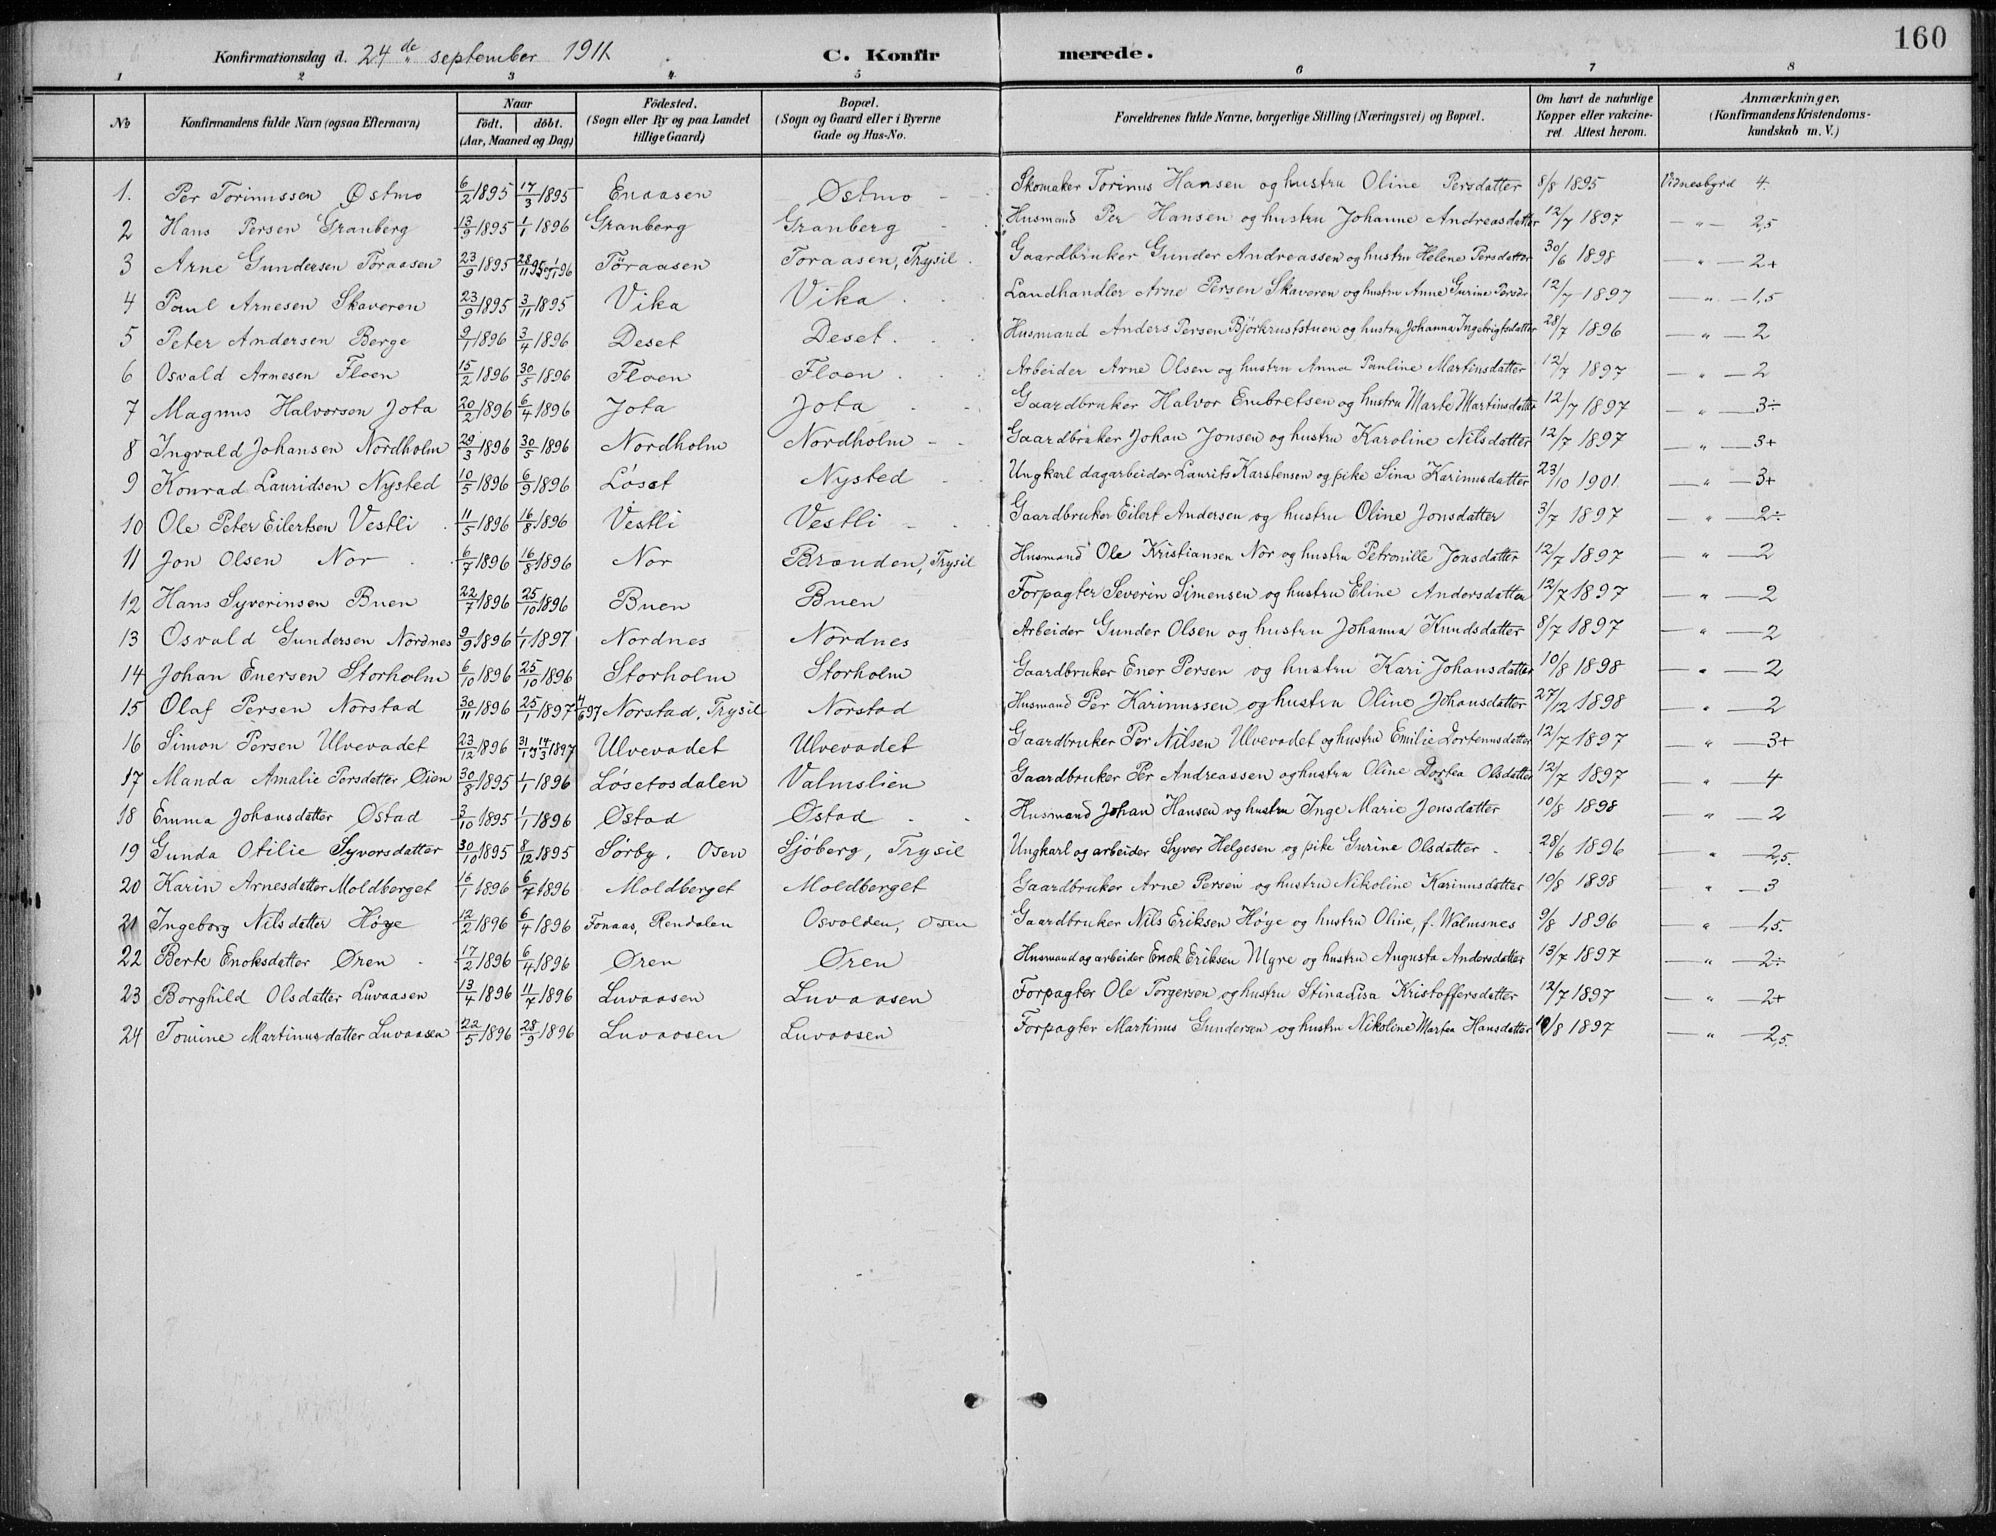 160
Konfirmationsdag d. 24de september 1911 C. Konfirmerede.
1 2 3 4 5 6 7 8
№ Konfirmandens fulde Navn (ogsaa Efternavn) Naar født, døbt. (Aar, Maaned og Dag) Fødested. (Sogn eller By og paa Landet tillige Gaard) Bopæl. (Sogn og Gaard eller i Byerne Gade og Hus-No. Forældrenes fulde Navne, borgerlige Stilling (Næringsvei) og Bopæl. Om havt de naturlige Kopper eller vakcineret. Attest herom. Anmærkninger. (Konfirmandens Kristendomskundskab m. V.)
1. Per Torinussen Østmo 6/2 1895 17/3 1895 Enaasen Østmo Skomaker Torinus Hansen og hustru Oline Persdatter 8/8 1895 Vidnesbyrd 4.
2 Hans Persen Granberg 13/9 1895 1/1 1896 Granberg Granberg Husmand Per Hansen og hustru Johanne Andreasdatter 12/7 1897 — " — 2,5
3 Arne Gundersen Toraasen 23/9 1895 28/11 95 og 1/1 96 Toraasen Toraasen, Trysil. Gaardbruker Gunder Andreassen og hustru Helene Persdatter 30/6 1898 — " — 2+
4 Paul Arnesen Skaveren 23/9 1895 3/11 1895 Vika Vika Landhandler Arne Persen Skaveren og hustru Anne Gurine Persdr 12/7 1897 — " — 1,5
5 Peter Andersen Berge 9/1 1896 3/4 1896 Deset Deset Husmand Anders Persen Björkruststuen og hustru Johanna Ingebrigtsdatter 28/7 1896 — " — 2
6 Osvald Arnesen Floen 15/2 1896 30/5 1896 Floen Floen Arbeider Arne Olsen og hustru Anna Pauline Martinsdatter 12/7 1897 — " — 2
7 Magnus Halvorsen Jota 20/2 1896 6/4 1896 Jota Jota Gaardbruker Halvor Embretsen og hustru Marte Martinsdatter 12/7 1897 — " — 3÷
8 Ingvald Johansen Nordholm 29/3 1896 30/5 1896 Nordholm Nordholm Gaardbruker Johan Jonsen og hustru Karoline Nilsdatter 12/7 1897 — " — 3+
9 Konrad Lauridsen Nysted 10/5 1896 6/9 1896 Løset Nysted Ungkarl dagarbeider Laurits Karstensen og pike Sina Karinusdatter 23/10 1901 — " — 3+
10 Ole Peter Eilertsen Vestli 11/5 1896 16/8 1896 Vestli Vestli Gaardbruker Eilert Andersen og hustru Oline Jonsdatter 3/7 1897 — " — 2÷
11 Jon Olsen Nor 6/7 1896 16/8 1896 Nor Brænden, Trysil Husmand Ole Kristiansen Nor og hustru Petronille Jonsdatter 12/7 1897 — " — 2
12 Hans Syverinsen Buen 22/7 1896 25/10 1896 Buen Buen Forpagter Severin Simensen og hustru Eline Andersdatter 12/7 1897 — " — 2
13 Osvald Gundersen Nordnes 9/9 1896 1/1 1897 Nordnes Nordnes Arbeider Gunder Olsen og hustru Johanna Knudsdatter 8/7 1897 — " — 2
14 Johan Enersen Storholm 6/10 1896 25/10 1896 Storholm Storholm Gaardbruker Ener Persen og hustru Kari Johansdatter 10/8 1898 — " — 2
15 Olaf Persen Norstad 30/11 1896 25/1 1897 4/6 97 Norstad, Trysil Norstad Husmand Per Karinussen og hustru Oline Johansdatter 27/12 1898 — " — 2
16 Simon Persen Ulvevadet 23/12 1896 31/1 og 14/3 1897 Ulvevadet Ulvevadet Gaardbruker Per Nilsen Ulvevadet og hustru Emilie Dortenusdatter 12/7 1897 — " — 3+
17 Manda Amalie Persdatter Øien 30/8 1895 1/1 1896 Løsetosdalen Valmslien Gaardbruker Per Andreassen og hustru Oline Dortea Olsdatter 12/7 1897 — " — 4
18 Emma Johansdatter Østad 3/10 1895 1/1 1896 Østad Østad Husmand Johan Hansen og hustru Inge Marie Jonsdatter 10/8 1898 — " — 2
19 Gunda Otilie Syversdatter 30/10 1895 8/12 1895 Sørby, Osen Sjöberg, Trysil Ungkarl og arbeider Syver Helgesen og pike Gurine Olsdatter 28/6 1896 — " — 2,5.
20 Karin Arnesdatter Moldberget 16/1 1896 6/7 1896 Moldberget Moldberget Gaardbruker Arne Persen og hustru Nikoline Karinusdatter 10/8 1898 — " — 3
21 Ingeborg Nilsdatter Høye 12/2 1896 6/4 1896 Fonaas, Rendalen Osvolden, Osen Gaardbruker Nils Eriksen Høye og hustru Oline, f. Walmsnes 9/8 1896 — " — 1,5.
22 Berte Enoksdatter Øren 17/2 1896 6/4 1896 Øren Øren Husmand og arbeider Enok Eriksen Myre og hustru Augusta Andersdatter 13/7 1897 — " — 2÷
23 Borghild Olsdatter Luvaasen 13/4 1896 11/7 1896 Luvaasen Luvaasen Forpagter Ole Torgersen og hustru Stina Lisa Kristoffersdatter 12/7 1897 — " — 2+
24 Tomine Martinusdatter Luvaasen 22/5 1896 28/9 1896 Luvaasen Luvaasen Forpagter Martinus Gundersen og hustru Nikoline Martea Hansdatter /8 1897 — " — 2,5.